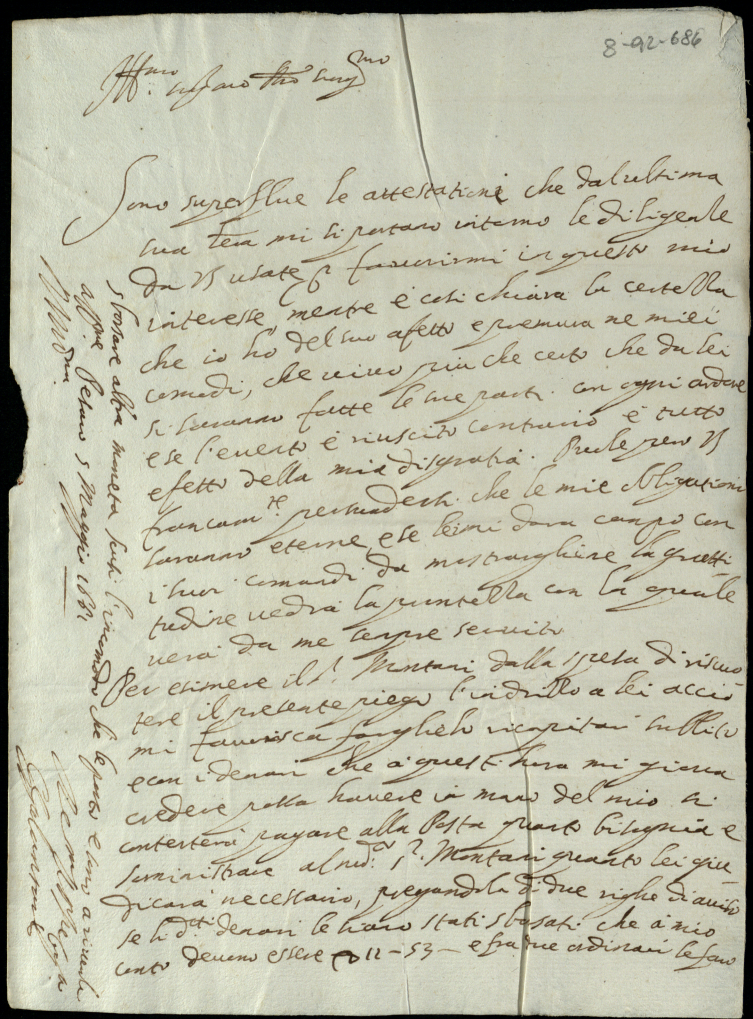 8-92-686
Sono superflue le attestationi che dal ultima
sua mi si portano intorno le diligenze
da VS usate p favorirmi in questo mio
interesse mentre è cosi chiara la certezza
che io hò del suo afetto e premura ne miei
comodi, che vivo piu che certo che da lei
si saranno fatte le sue parti con ogni ardore
e se l'evento è riuscito contrario è tutto
efetto della mia disgratia. pero VS
francam.te persuadersi che le mie obligationi
saranno eterne e se lei mi dara campo con
i suoi comandi da mostrargliene la gratti
tudine vedra la puntezza con la quale
verà da me sempre servito
Per esimere il S.r Montari dalla spesa di riscuo
tere il presente piego l'indrizzo a lei acciò
mi favorisca farghelo ricapitar subbito
e con i denari che a quest'hora mi giova
credere possa havere in mano del mio si
contenterà pagare alla Posta quanto bisognia e
suministrare al S.r Montari quanto lei giu
dicarà necessario, pregandola di due righe di aviso
se li d.tti denari le sono stati sbosati che à mio
conto devono essere 12-53- e fra due ordinari le farò
sborsare altra moneta scusi l'incomodo che le porto e sono a riverirla
Pesaro 5 Maggio